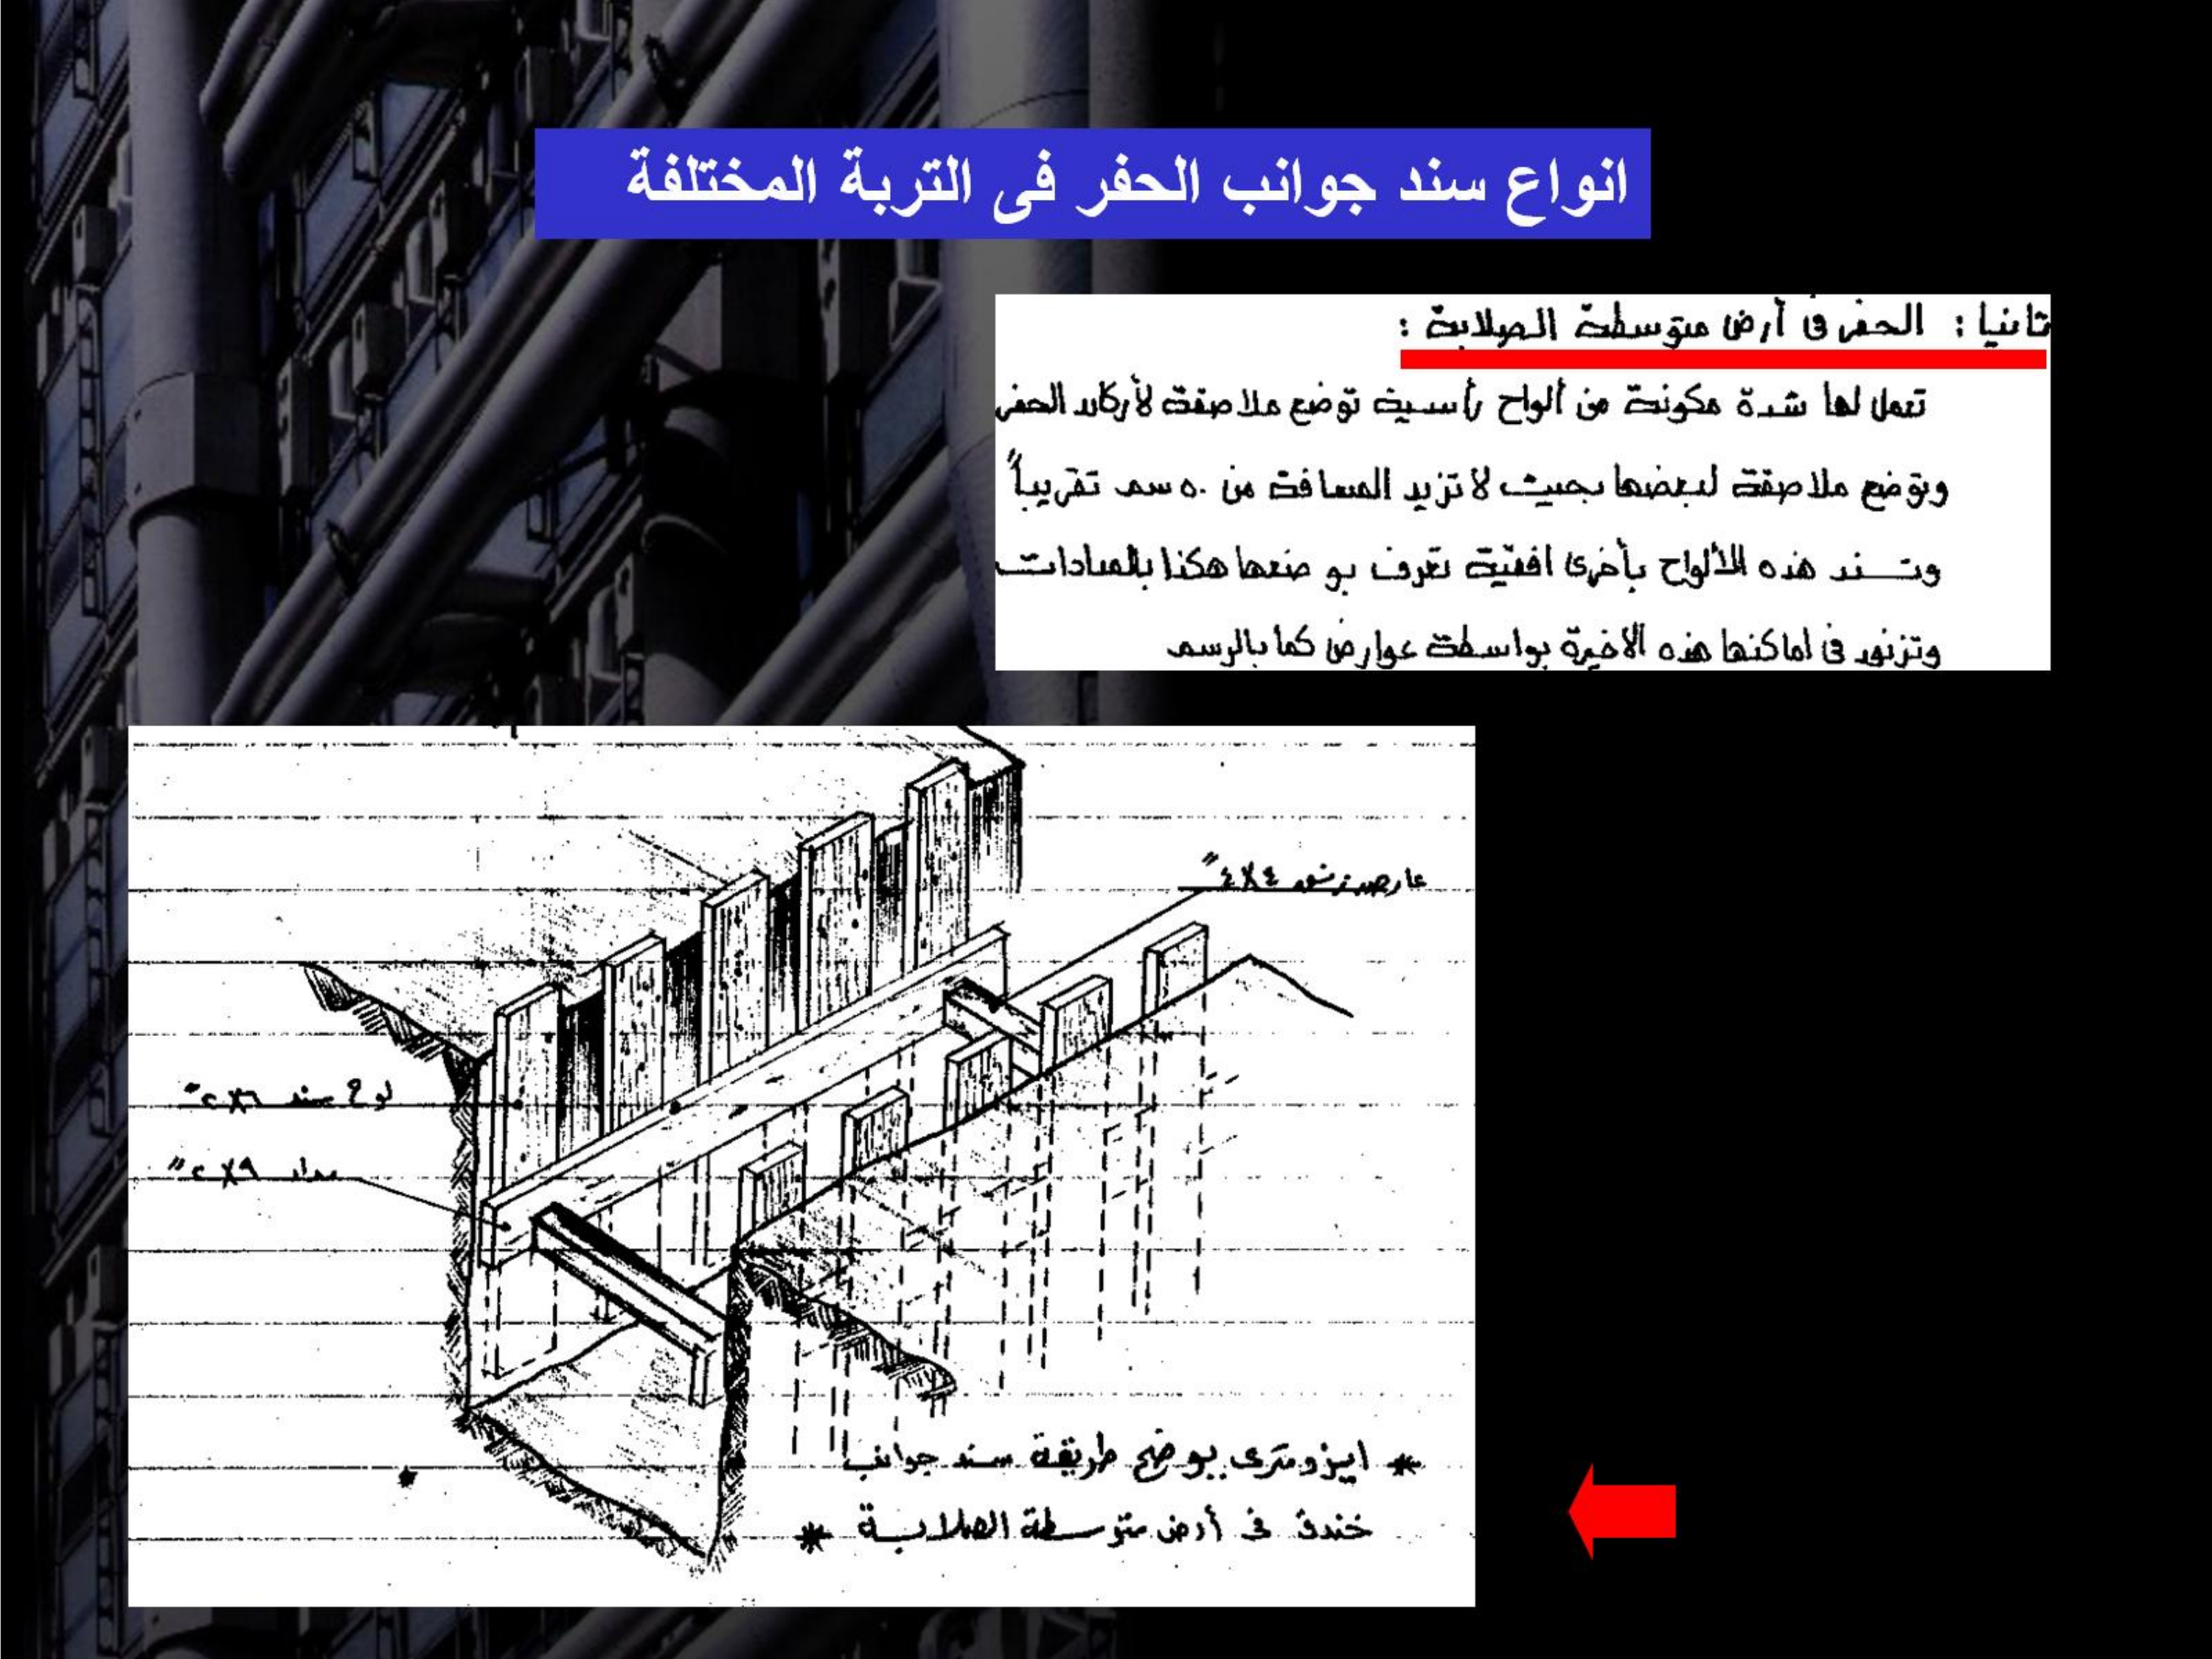 انواع سند جوانب الحفر فى التربة المختلفة
ثانيا : الحفر فى أرض متوسطة الصلابة :
تعمل لها شدة مكونة من ألواح رأسية توضع ملاصقة لأركان الحفر
وتوضع ملاصقة لبعضها بحيث لا تزيد المسافة من ٥٠ سم تقريباً
وتسند هذه الألواح بأخرى افقية تعرف بوضعها هكذا بالمدادات
وتزنق فى اماكنها هذه الاخيرة بواسطة عوارض كما بالرسم
عارضة زنق ٤X٤"
لوح سند ٦X٢"
مداد ٩X٢"
* ايزومترى يوضح طريقة سند جوانب
خندق فى أرض متوسطة الصلابة *